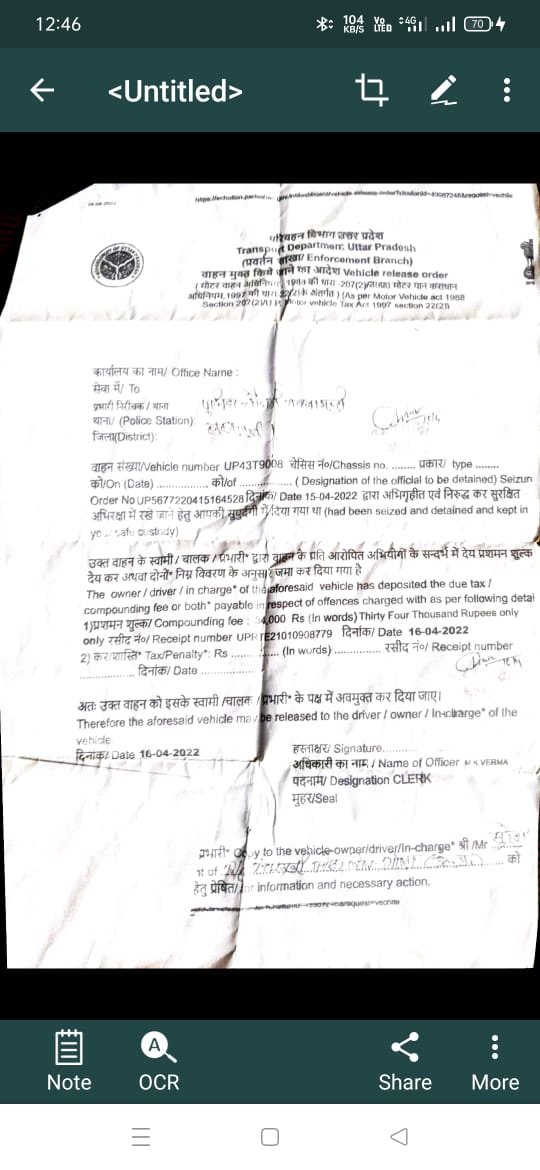 12:46
104 KB/S
Vo LTED
4G
70
<Untitled>
परिवहन विभाग उत्तर प्रदेश
Transport Department Uttar Pradesh
(प्रवर्तन शाखा/ Enforcement Branch)
वाहन मुक्त किये जाने का आदेश Vehicle release order
( मोटर वाहन अधिनियम, 1988 की धारा -207(2) मोटर यान कराधान
अधिनियम, 1997 की धारा 22(2) के अंतर्गत ) (As per Motor Vehicle act 1988
Section 207(2)/ Motor vehicle Tax Act 1997 section 22(2))
कार्यालय का नाम/ Office Name :
सेवा में/ To
प्रभारी निरीक्षक / थाना
थाना/ (Police Station):
जिला(District):
वाहन संख्या/Vehicle number UP43T9008 चेसिस नं०/Chassis no. ........ प्रकार/ type ........
को/On (Date) ................ को/of ................ ( Designation of the official to be detained) Seizun
Order No UP5677220415164528 दिनांक/ Date 15-04-2022 द्वारा अभिगृहीत एवं निरुद्ध कर सुरक्षित
अभिरक्षा में रखे जाने हेतु आपकी सुपुर्दगी में दिया गया था (had been seized and detained and kept in
your safe custody)
उक्त वाहन के स्वामी / चालक / प्रभारी* द्वारा वाहन के प्रति आरोपित अभियोगों के सन्दर्भ में देय प्रशमन शुल्क
देय कर अथवा दोनों* निम्न विवरण के अनुसार जमा कर दिया गया है
The owner / driver / in charge* of the aforesaid vehicle has deposited the due tax /
compounding fee or both* payable in respect of offences charged with as per following detai
1)प्रशमन शुल्क/ Compounding fee : 34,000 Rs (In words) Thirty Four Thousand Rupees only
only रसीद नं०/ Receipt number UPRTE21010908779 दिनांक/ Date 16-04-2022
2) कर/शास्ति* Tax/Penalty*: Rs .............. (In words) .............. रसीद नं०/ Receipt number
................ दिनांक/ Date ................
अतः उक्त वाहन को इसके स्वामी /चालक / प्रभारी* के पक्ष में अवमुक्त कर दिया जाए।
Therefore the aforesaid vehicle may be released to the driver / owner / In-charge* of the
vehicle.
दिनांक/ Date 16-04-2022
हस्ताक्षर/ Signature.........
अधिकारी का नाम / Name of Officer M K VERMA
पदनाम/ Designation CLERK
मुहर/Seal
प्रभारी* Copy to the vehicle-owner/driver/In-charge* श्री /Mr
को
हेतु प्रेषित/ for information and necessary action.
Note
OCR
Share
More